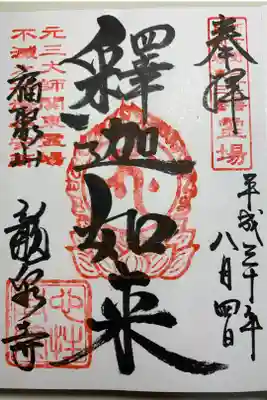 奉拝
霊場
平成三十年
八月四日
釋迦如来
元三大師関東霊場
福聚山
龍泉寺